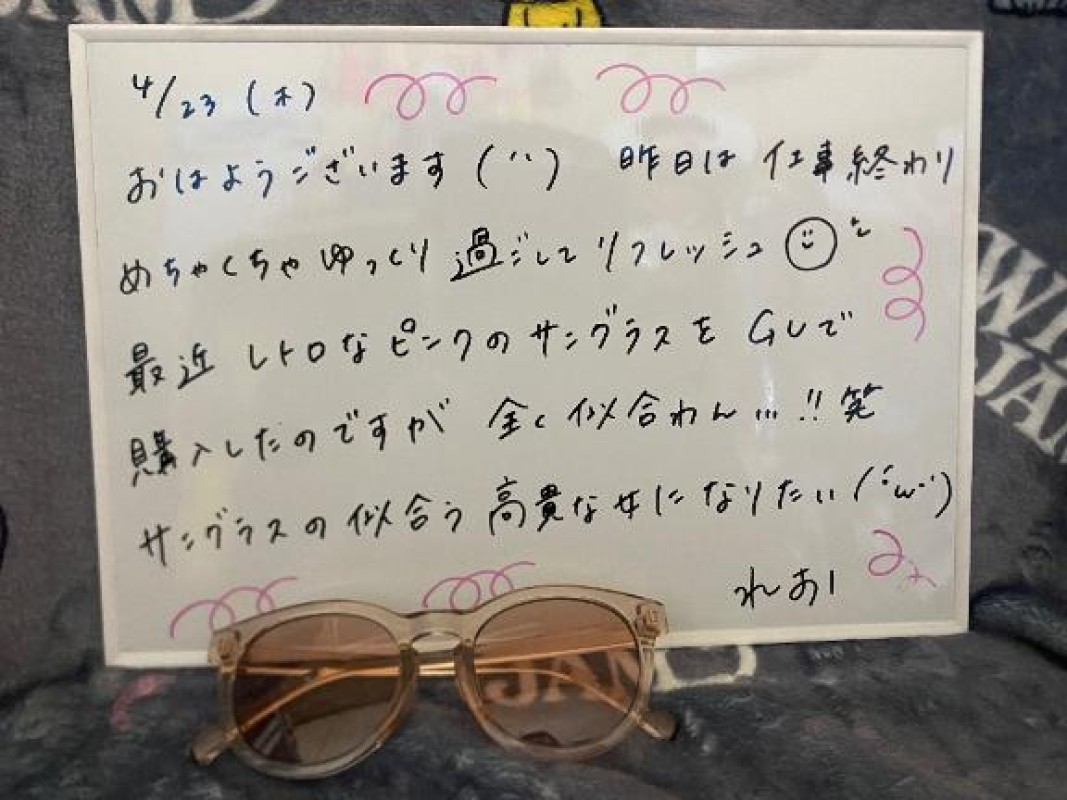 4/23 (木)
おはようございます(¨) 昨日は 仕事終わり
めちゃくちゃ ゆっくり 過ごして リフレッシュ
最近 レトロなピンクのサングラスを GUで
購入したのですが 全く似合わん…!!笑
サングラスの似合う 高貴な女になりたい(´ω`)
れあ
JAN